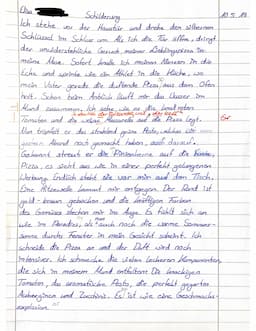 Schilderung 19.5.19
Ich stehe vor der Haustür und drehe den silbernen
Schlüssel im Schloss um. Als ich die Tür öffne, dringt
der unwiderstehliche Geruch meiner Lieblingspizza in
meine Nase. Sofort haue ich meinen Ranzen in die
Ecke und sprinte wie ein Athlet in die Küche, wo
mein Vater gerade die duftende Pizza aus dem Ofen
holt. Schon beim Anblick läuft mir das Wasser im
Mund zusammen. Ich sehe, wie er die knallroten
Tomaten und die weiße Mozzarella auf die Pizza legt.
Nun träufelt er das strahlend grüne Pesto, welches wir
gestern Abend noch gemacht haben, auch darauf.
Gebannt streut er die Pinienkerne auf die
Pizza, es sieht aus wie in einer perfekt gelungenen
Werbung. Endlich steht sie vor mir auf dem Tisch.
Eine Hitzewelle kommt mir entgegen. Der Rand ist
gold-braun gebacken und die kräftigen Farben
des Gemüses stechen mir ins Auge. Es fühlt sich an
wie im Paradies, als auch noch die warme Sommer-
sonne durchs Fenster in mein Gesicht scheint. Ich
schneide die Pizza an und der Duft wird noch
intensiver. Ich schmecke die vielen leckeren Komponenten,
die sich in meinem Mund entfalten: Die knackigen
Tomaten, das aromatische Pesto, die perfekt gegarten
Auberginen und Zucchinis. Es ist wie eine Geschmacks-
explosion.